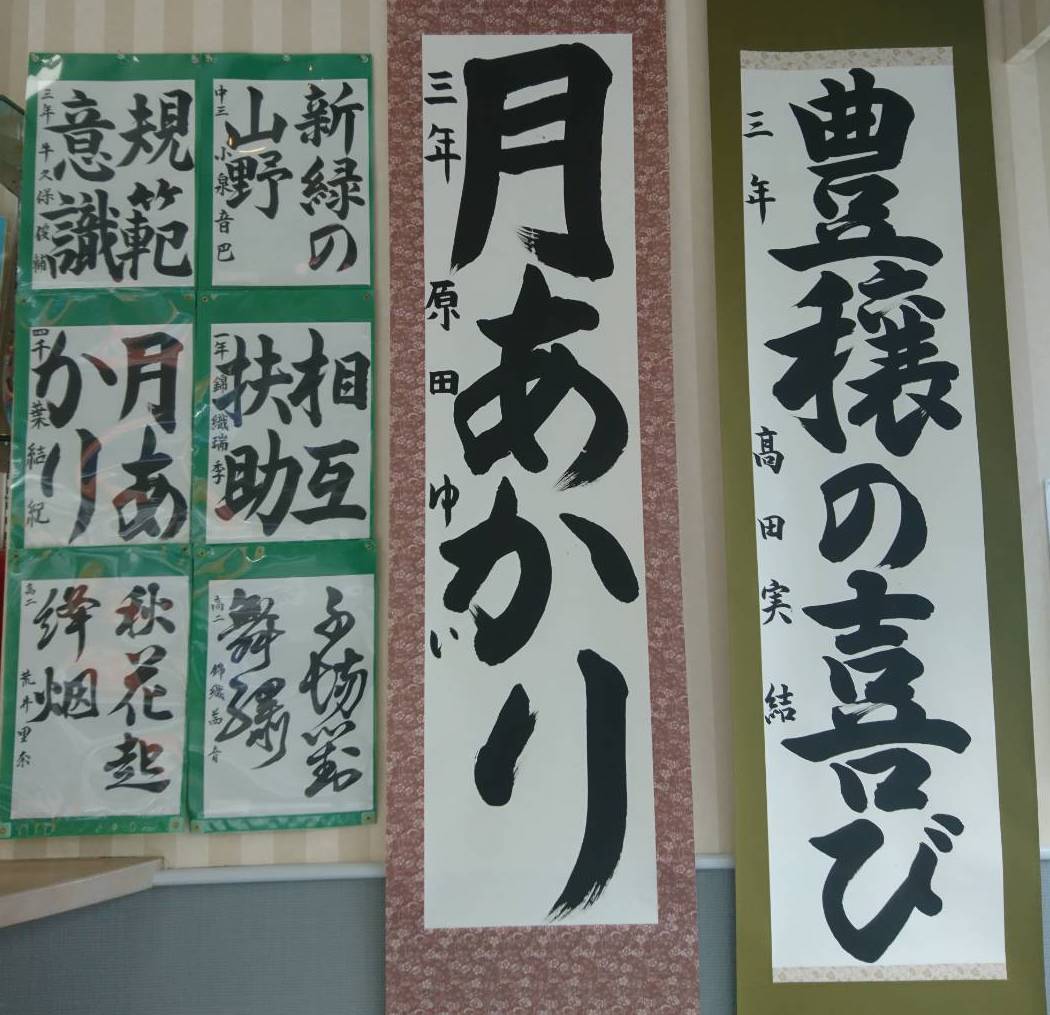 規範
意識
三年 牛久保俊輔
新緑の
山野
中三 小泉音巴
月あ
かり
四 千葉結紀
相互
扶助
錦織瑞季
秋花起
絳烟
高二 荒井里奈
舞
高二 錦織
月あかり
三年 原田ゆい
豊穣の喜び
三年 髙田実結